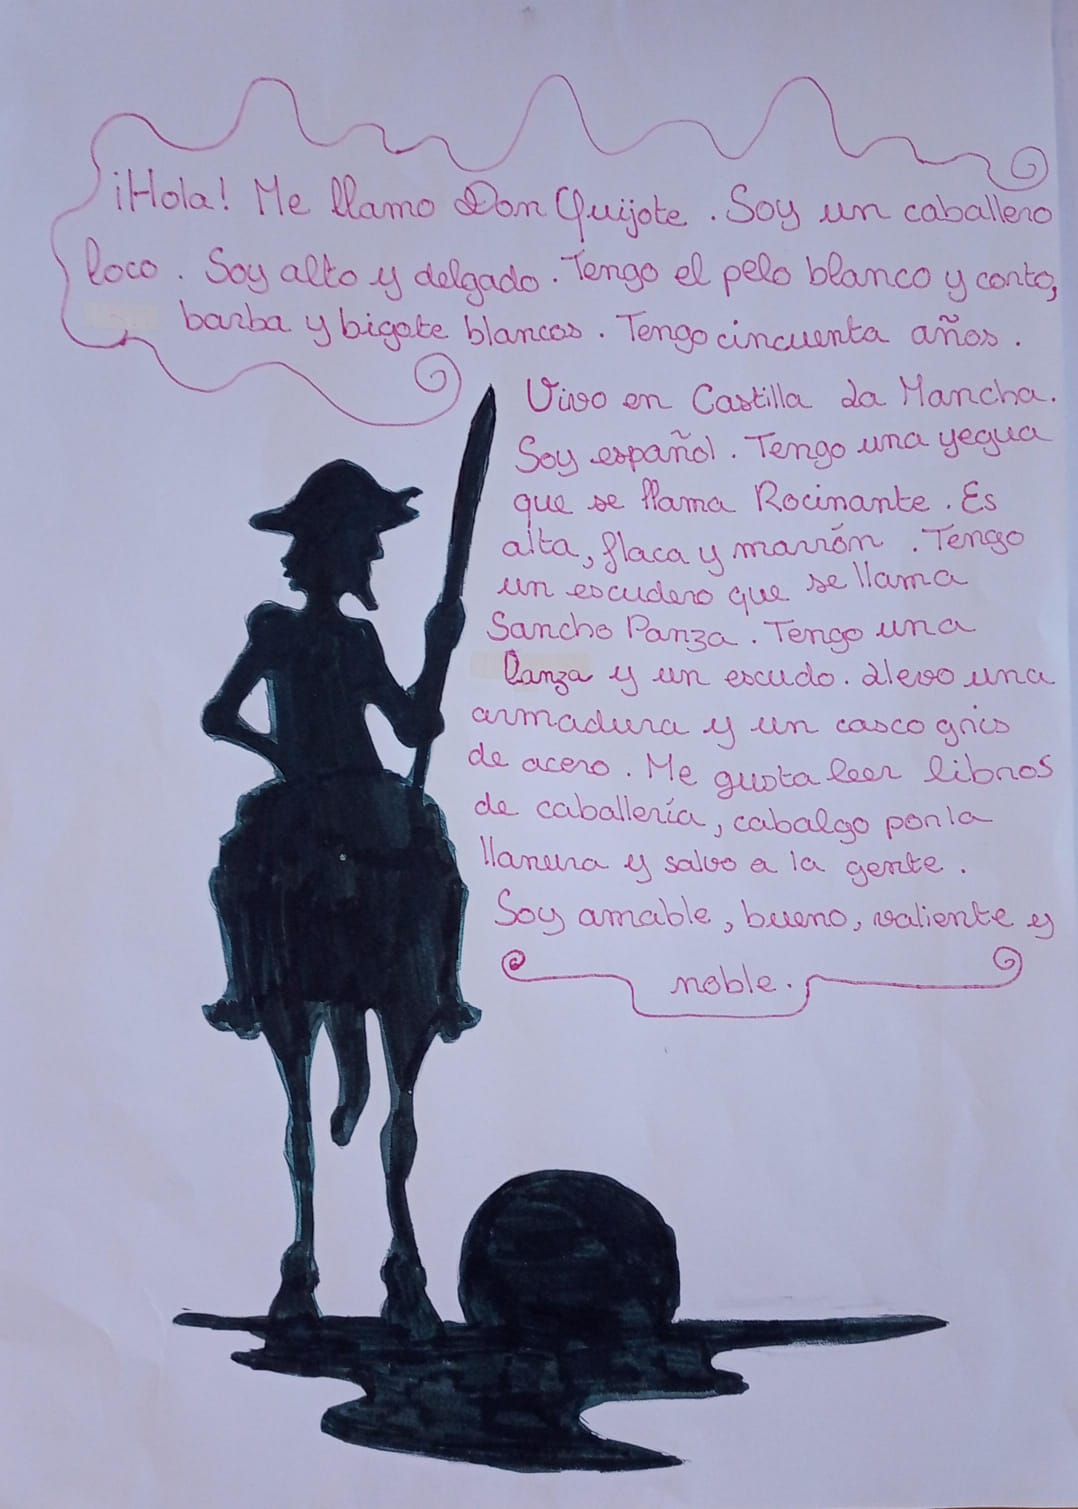 ¡Hola! Me llamo Don Quijote. Soy un caballero
loco. Soy alto y delgado. Tengo el pelo blanco y corto,
barba y bigote blancos. Tengo cincuenta años.
Vivo en Castilla La Mancha.
Soy español. Tengo una yegua
que se llama Rocinante. Es
alta, flaca y marrón. Tengo
un escudero que se llama
Sancho Panza. Tengo una
lanza y un escudo. Llevo una
armadura y un casco gris
de acero. Me gusta leer libros
de caballería, cabalgo por la
llanura y salvo a la gente.
Soy amable, bueno, valiente y
noble.